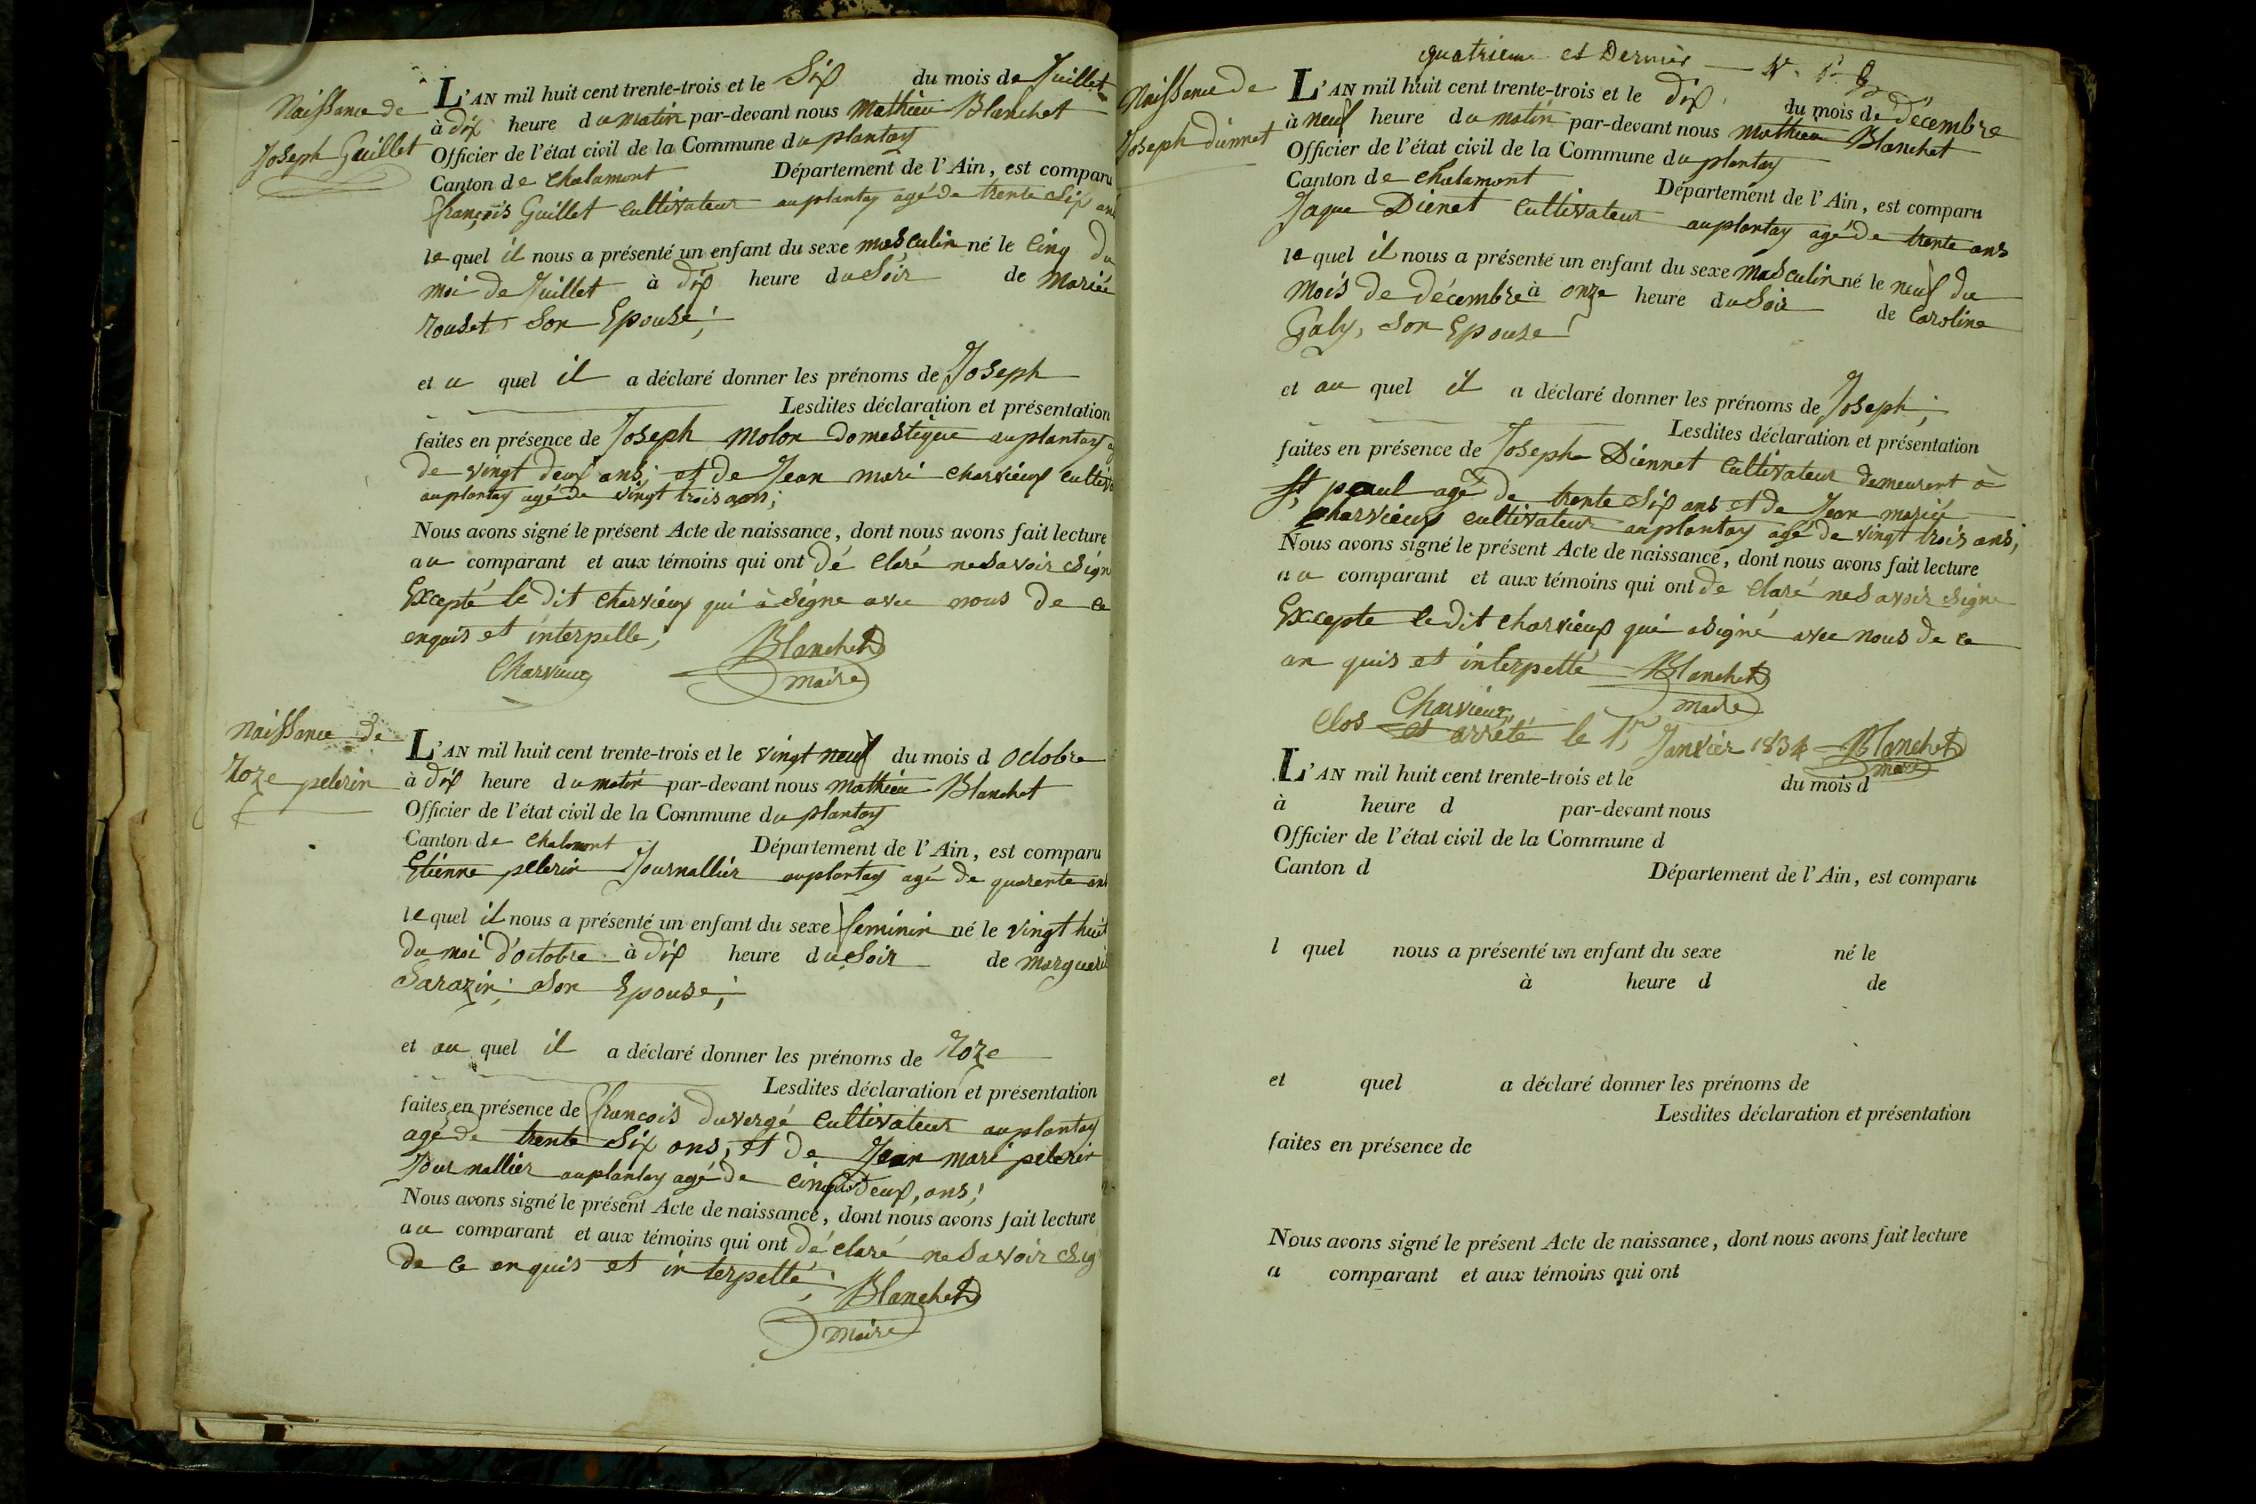 Naissance de
Joseph Guillet
L'AN mil huit cent trente-trois et le Six du mois de Juillet
à dix heure du matin par-devant nous mathieu Blanchet
Officier de l'état civil de la Commune du plantay
Canton de chalamont Département de l'Ain, est comparu
françois Guillet cultivateur au plantay agé de trente Six ans
le quel il nous a présenté un enfant du sexe masculin né le Cinq du
moi de Juillet à dix heure du Soir de Mariée
rouset Son Epouse;
et a quel il a déclaré donner les prénoms de Joseph
Lesdites déclaration et présentation
faites en présence de Joseph Molon Domestique au plantay
de vingt deux ans; et de Jean mari charvieux cultiv
au plantay agé de vingt trois ans;
Nous avons signé le présent Acte de naissance, dont nous avons fait lecture
au comparant et aux témoins qui ont dé claré ne Savoir Sign
Excepté le dit charvieux qui à Signe avec nous de ce
enquis et interpelle;
Charvieux Blanchet
maire
naissance de
roze pelerin
L'AN mil huit cent trente-trois et le vingt neuf du mois d octobre
à dix heure du matin par-devant nous mathieu Blanchet
Officier de l'état civil de la Commune du plantay
Canton de chalamont Département de l'Ain, est comparu
Etienne pelerin Journallier au plantay agé de quarente ans
le quel il nous a présenté un enfant du sexe feminin né le vingt huit
du moi d'octobre à dix heure du Soir de marguerit
Sarazin; Son Epouse;
et au quel il a déclaré donner les prénoms de roze
Lesdites déclaration et présentation
faites en présence de francois duvergé cultivateur au plantay
agé de trente Six ans, et de Jean mari pelerin
Journallier au plantay agé de cinquante deux, ans;
Nous avons signé le présent Acte de naissance, dont nous avons fait lecture
au comparant et aux témoins qui ont dé claré ne Savoir Sig
de ce enquis et interpellé;
Blanchet
maire
quatrieme et Dernier
Naissance de
Joseph diennet
L'AN mil huit cent trente-trois et le dix du mois de décembre
à neuf heure du matin par-devant nous mathieu Blanchet
Officier de l'état civil de la Commune du plantay
Canton de chalamont Département de l'Ain, est comparu
Jaque Dienet cultivateur au plantay agé de trente ans
le quel il nous a présenté un enfant du sexe masculin né le neuf du
mois de décembre à onze heure du Soir de Caroline
Galy, Son Epouse
et au quel il a déclaré donner les prénoms de Joseph;
Lesdites déclaration et présentation
faites en présence de Joseph Diennet cultivateur demeurent à
St paul agé de trente Six ans et de Jean mariée
Charvieux cultivateur au plantay agé de vingt trois ans;
Nous avons signé le présent Acte de naissance, dont nous avons fait lecture
au comparant et aux témoins qui ont de claré ne Savoir Signe
Excepte le dit charvieux qui a signé avec nous de ce
an quis et interpellé Blanchet
Charvieux maire
Clos et arrété le 1er Janvier 1834 Blanchet
maire
L'AN mil huit cent trente-trois et le du mois d
à heure d par-devant nous
Officier de l'état civil de la Commune d
Canton d Département de l'Ain, est comparu
l quel nous a présenté un enfant du sexe né le
à heure d de
et quel a déclaré donner les prénoms de
Lesdites déclaration et présentation
faites en présence de
Nous avons signé le présent Acte de naissance, dont nous avons fait lecture
a comparant et aux témoins qui ont